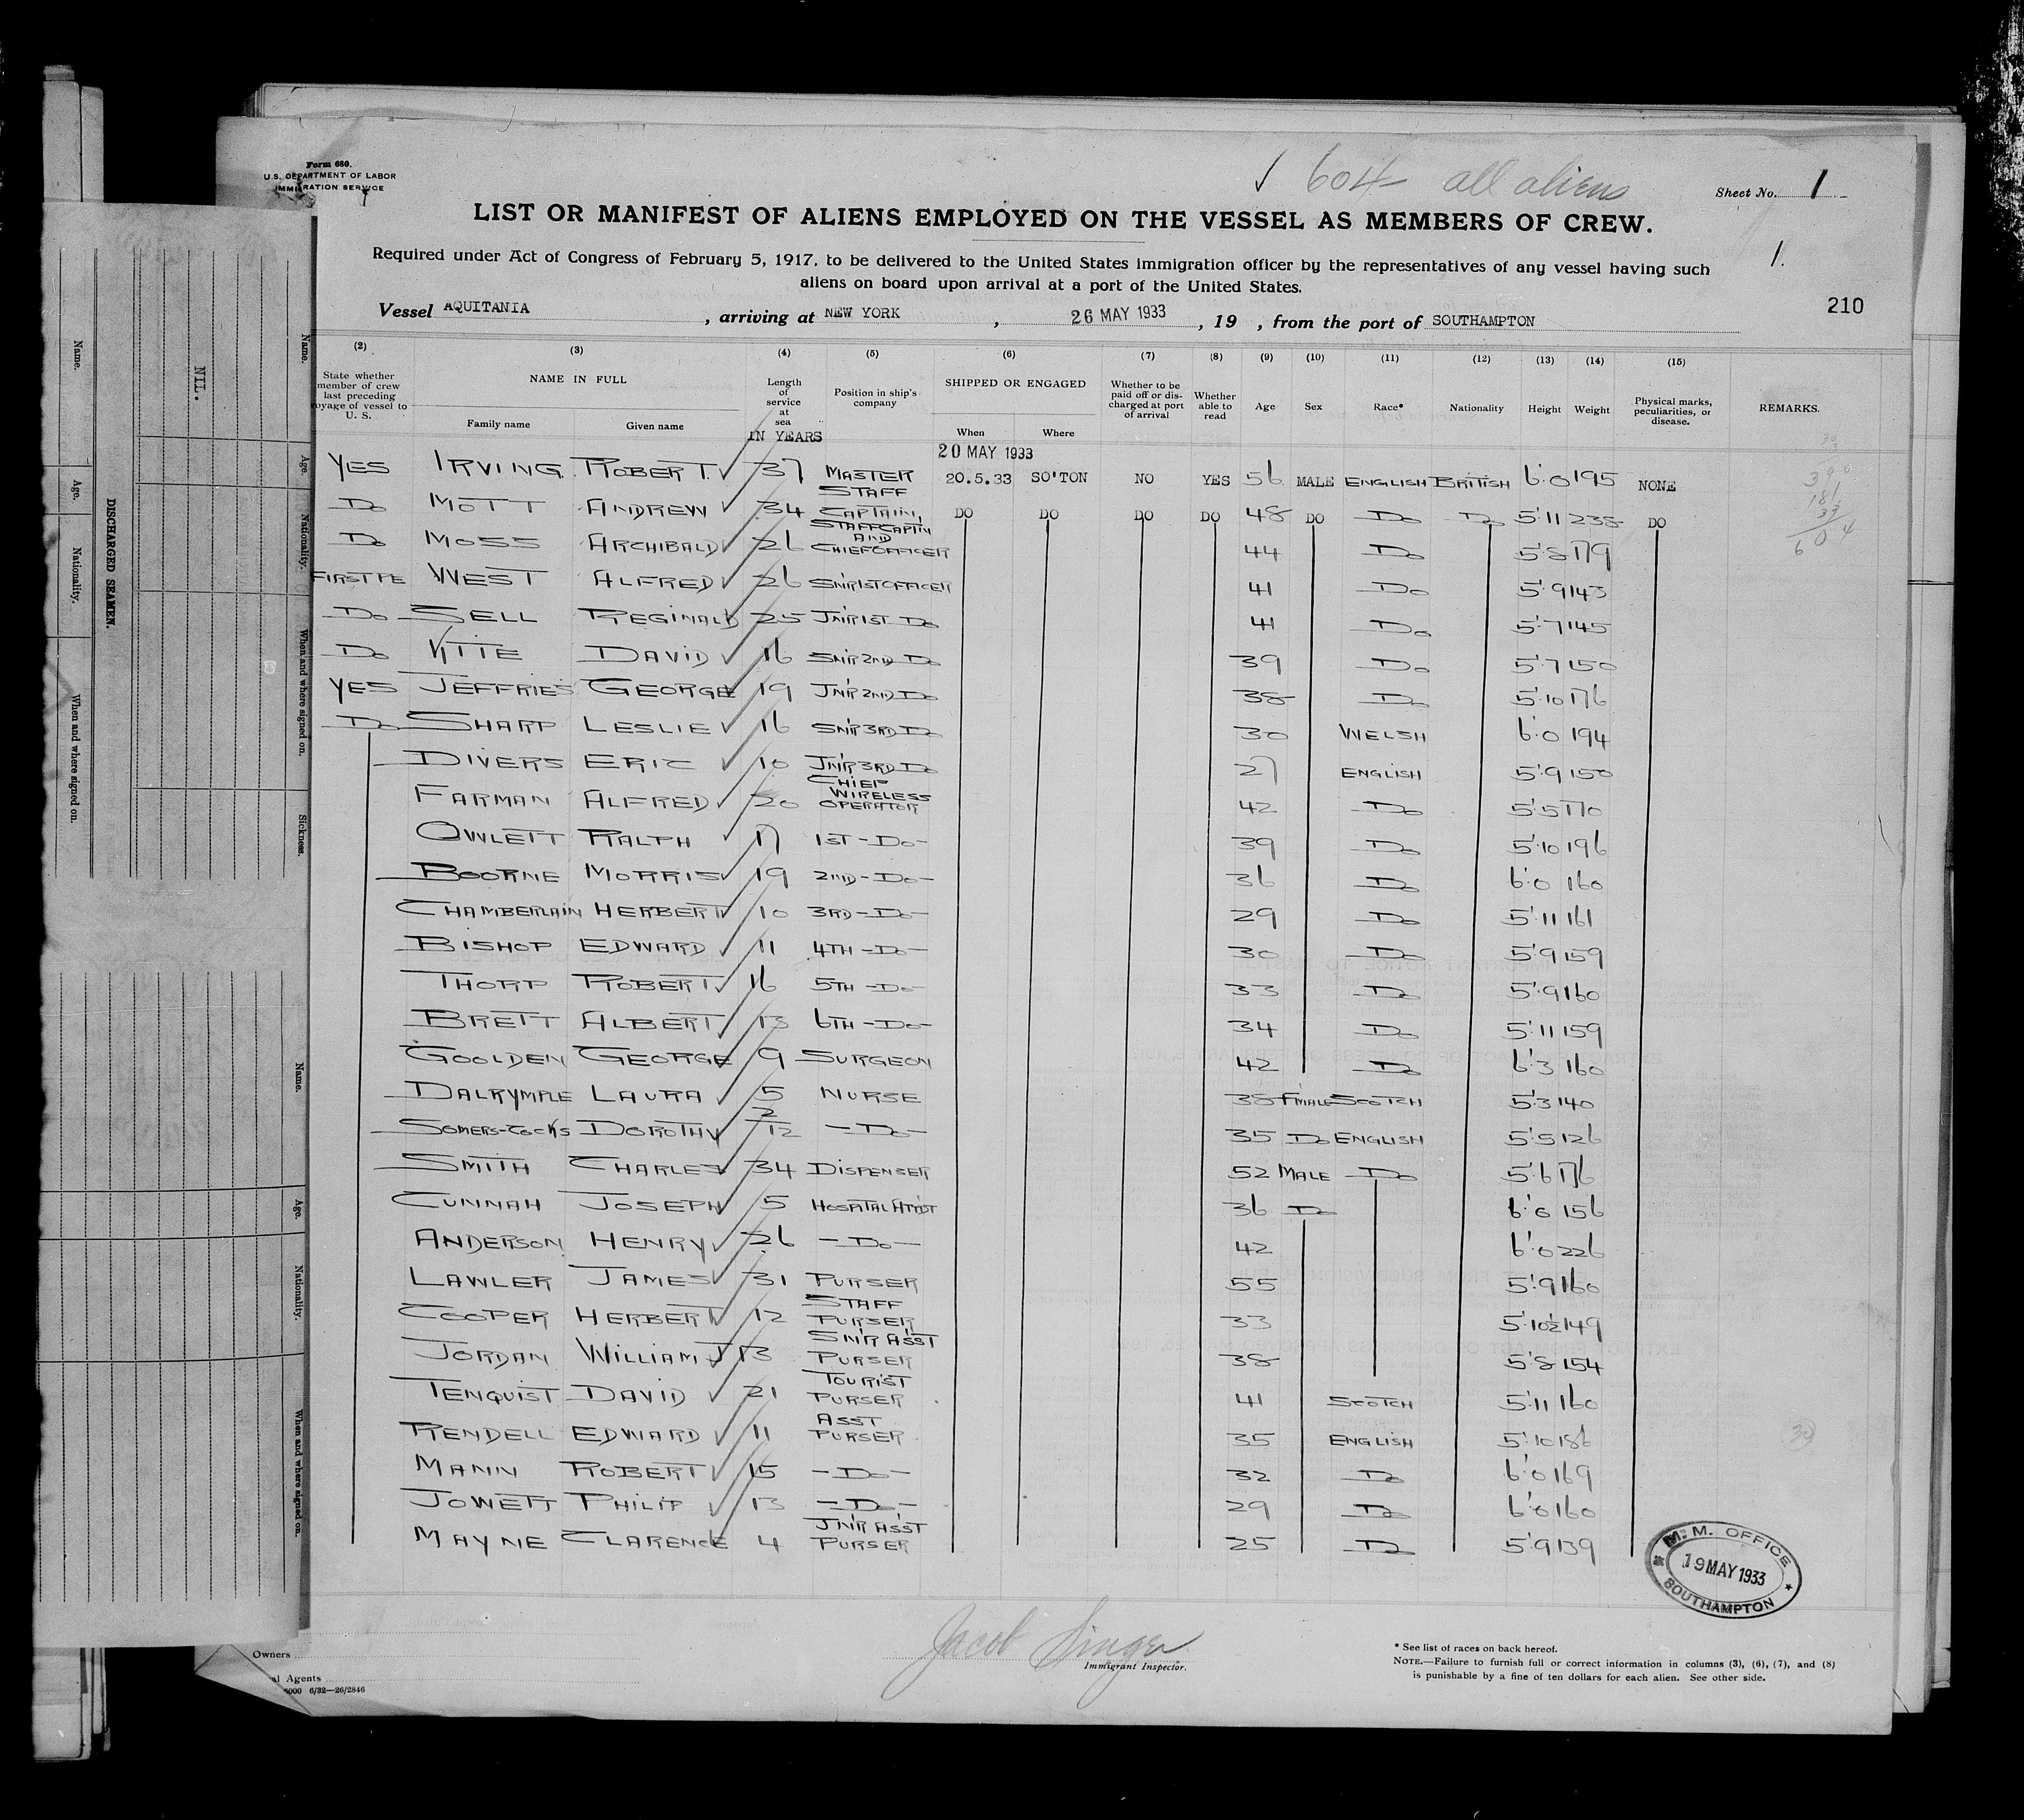 Form 680.
U.S. DEPARTMENT OF LABOR
IMMIGRATION SERVICE
√ 604 - all aliens
Sheet No. 1
LIST OR MANIFEST OF ALIENS EMPLOYED ON THE VESSEL AS MEMBERS OF CREW.
1.
Required under Act of Congress of February 5, 1917, to be delivered to the United States immigration officer by the representatives of any vessel having such
aliens on board upon arrival at a port of the United States.
210
Vessel AQUITANIA, arriving at NEW YORK, 26 MAY 1933, 19 , from the port of SOUTHAMPTON
(2) (3) (4) (5) (6) (7) (8) (9) (10) (11) (12) (13) (14) (15)
State whether member of crew last preceding voyage of vessel to U. S. NAME IN FULL Family name Given name Length of service at sea IN YEARS Position in ship's company SHIPPED OR ENGAGED When Where Whether to be paid off or discharged at port of arrival Whether able to read Age Sex Race* Nationality Height Weight Physical marks, peculiarities, or disease. REMARKS.
20 MAY 1933
YES IRVING ROBERT √ 37 MASTER 20.5.33 SO'TON NO YES 56 MALE ENGLISH BRITISH 6'.0 195 NONE
DO MOTT ANDREW √ 34 STAFF CAPTAIN, DO DO DO DO 48 DO DO DO 5'11 238 DO
DO MOSS ARCHIBALD √ 26 STAFF CAPTIN AND CHIEF OFFICER 44 DO 5'8 179
FIRST PE WEST ALFRED √ 26 SN'R 1ST OFFICER 41 DO 5'.9 143
DO SELL REGINALD √ 25 JN'R 1ST DO 41 DO 5'.7 145
DO DAVID √ 16 SN'R 2ND DO 39 DO 5'.7 150
YES JEFFRIES GEORGE √ 19 JN'R 2ND DO 38 DO 5'.10 176
DO SHARP LESLIE √ 16 SN'R 3RD DO 30 WELSH 6'.0 194
DIVERS ERIC √ 10 JN'R 3RD DO 27 ENGLISH 5'.9 150
FARMAN ALFRED √ 20 CHIEF WIRELESS OPERATOR 42 DO 5'.5 170
OWLETT RALPH 17 1ST - DO - 39 DO 5'.10 196
BOORNE MORRIS √ 19 2ND - DO - 36 DO 6'.0 160
CHAMBERLAIN HERBERT √ 10 3RD - DO - 29 DO 5'.11 161
BISHOP EDWARD √ 11 4TH - DO - 30 DO 5'.9 159
THORP ROBERT √ 16 5TH - DO - 33 DO 5'.9 160
BRETT ALBERT √ 13 6TH - DO - 34 DO 5'.11 159
GOOLDEN GEORGE √ 9 SURGEON 42 DO 6'.3 160
DALRYMPLE LAURA √ 5 NURSE 38 F'MALE SCOTCH 5'.3 140
SOMERS-COCKS DOROTHY √ 2/12 - DO - 35 DO ENGLISH 5'.5 126
SMITH CHARLES √ 34 DISPENSER 52 MALE DO 5'.6 176
CUNNAH JOSEPH √ 5 HOSPITAL ATT'DT 36 DO 6'.0 156
ANDERSON HENRY √ 26 - DO - 42 6'.0 226
LAWLER JAMES √ 31 PURSER 55 5'.9 160
COOPER HERBERT √ 12 STAFF PURSER 33 5'.10½ 149
JORDAN WILLIAM J √ 13 SN'R ASST PURSER 38 5'.8 154
TENQUIST DAVID √ 21 TOURIST PURSER 41 SCOTCH 5'.11 160
RENDELL EDWARD √ 11 ASST PURSER 35 ENGLISH 5'.10 186
MANN ROBERT √ 15 - DO - 32 DO 6'.0 169
JOWETT PHILIP √ 13 - DO - 29 DO 6'.0 160
MAYNE CLARENCE √ 4 JN'R ASST PURSER 25 DO 5'.9 139
390
181
33
604
30
M. M. OFFICE
19 MAY 1933
SOUTHAMPTON
Jacob Singer
Immigrant Inspector.
Owners
al Agents
6000 6/32—26/2846
* See list of races on back hereof.
NOTE.—Failure to furnish full or correct information in columns (3), (6), (7), and (8)
is punishable by a fine of ten dollars for each alien. See other side.
DISCHARGED SEAMEN.
NIL.
Name. Age. Nationality. When and where signed on. Sickness.
Name. Age. Nationality. When and where signed on.
Name. Age. Nationality. When and where signed on.